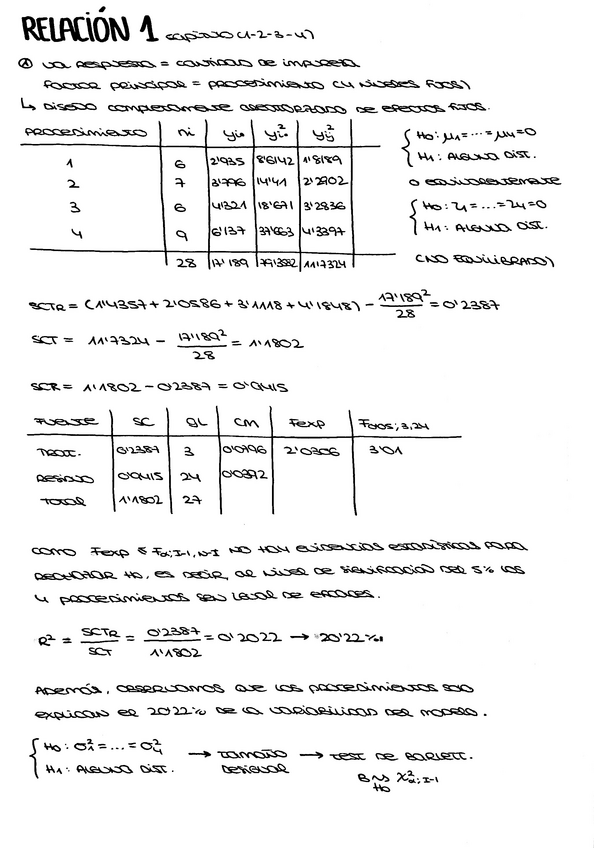 RELACIÓN 1 CAPÍTULO (1-2-3-4)
① VA RESPUESTA = CANTIDAD DE IMPUREZA
FACTOR PRINCIPAL = PROCEDIMIENTO (4 NIVELES FIJOS)
↳ DISEÑO COMPLETAMENTE ALEATORIZADO DE EFECTOS FIJOS.
PROCEDIMIENTO ni yi• yi•² yij²
1 6 2'935 8'6142 1'8189
2 7 3'796 14'41 2'2902
3 6 4'321 18'671 3'2836
4 9 6'137 37'663 4'3397
28 17'189 79'3582 11'7324
{ H0: μ1 = ... = μ4 = 0
H1: ALGUNO DIST.
O EQUIVALENTEMENTE
{ H0: τ1 = ... = τ4 = 0
H1: ALGUNO DIST.
(NO EQUILIBRADO)
SCTR = (1'4357 + 2'0586 + 3'1118 + 4'1848) - 17'189² / 28 = 0'2387
SCT = 11'7324 - 17'189² / 28 = 1'1802
SCR = 1'1802 - 0'2387 = 0'9415
FUENTE SC GL CM Fexp F0'05; 3,24
TRAT. 0'2387 3 0'0796 2'0306 3'01
RESIDUO 0'9415 24 0'0392
TOTAL 1'1802 27
COMO Fexp ≤ Fα; I-1, N-I NO HAY EVIDENCIAS ESTADÍSTICAS PARA
RECHAZAR H0, ES DECIR, AL NIVEL DE SIGNIFICACIÓN DEL 5% LOS
4 PROCEDIMIENTOS SON IGUAL DE EFICACES.
R² = SCTR / SCT = 0'2387 / 1'1802 = 0'2022 → 20'22%
ADEMÁS, OBSERVAMOS QUE LOS PROCEDIMIENTOS SOLO
EXPLICAN EL 20'22% DE LA VARIABILIDAD DEL MODELO.
{ H0: σ1² = ... = σ4² → TAMAÑO → TEST DE BARLETT.
H1: ALGUNO DIST. DESIGUAL B ~ χ²α; I-1
H0